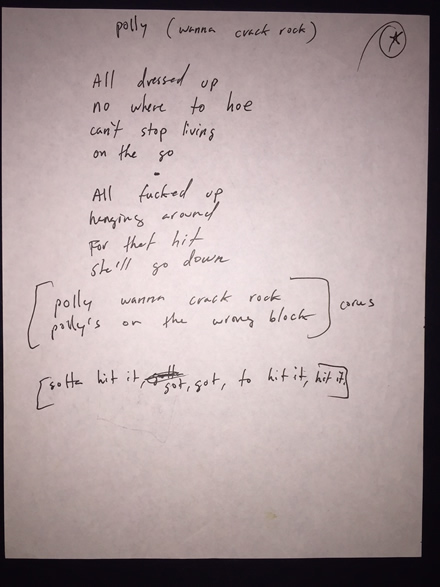 polly (wanna crack rock)
All dressed up
no where to hoe
can't stop living
on the go
All fucked up
hanging around
For that hit
she'll go down
[polly wanna crack rock
polly's on the wrong block] corus
[gotta hit it, got, got, to hit it, hit it]